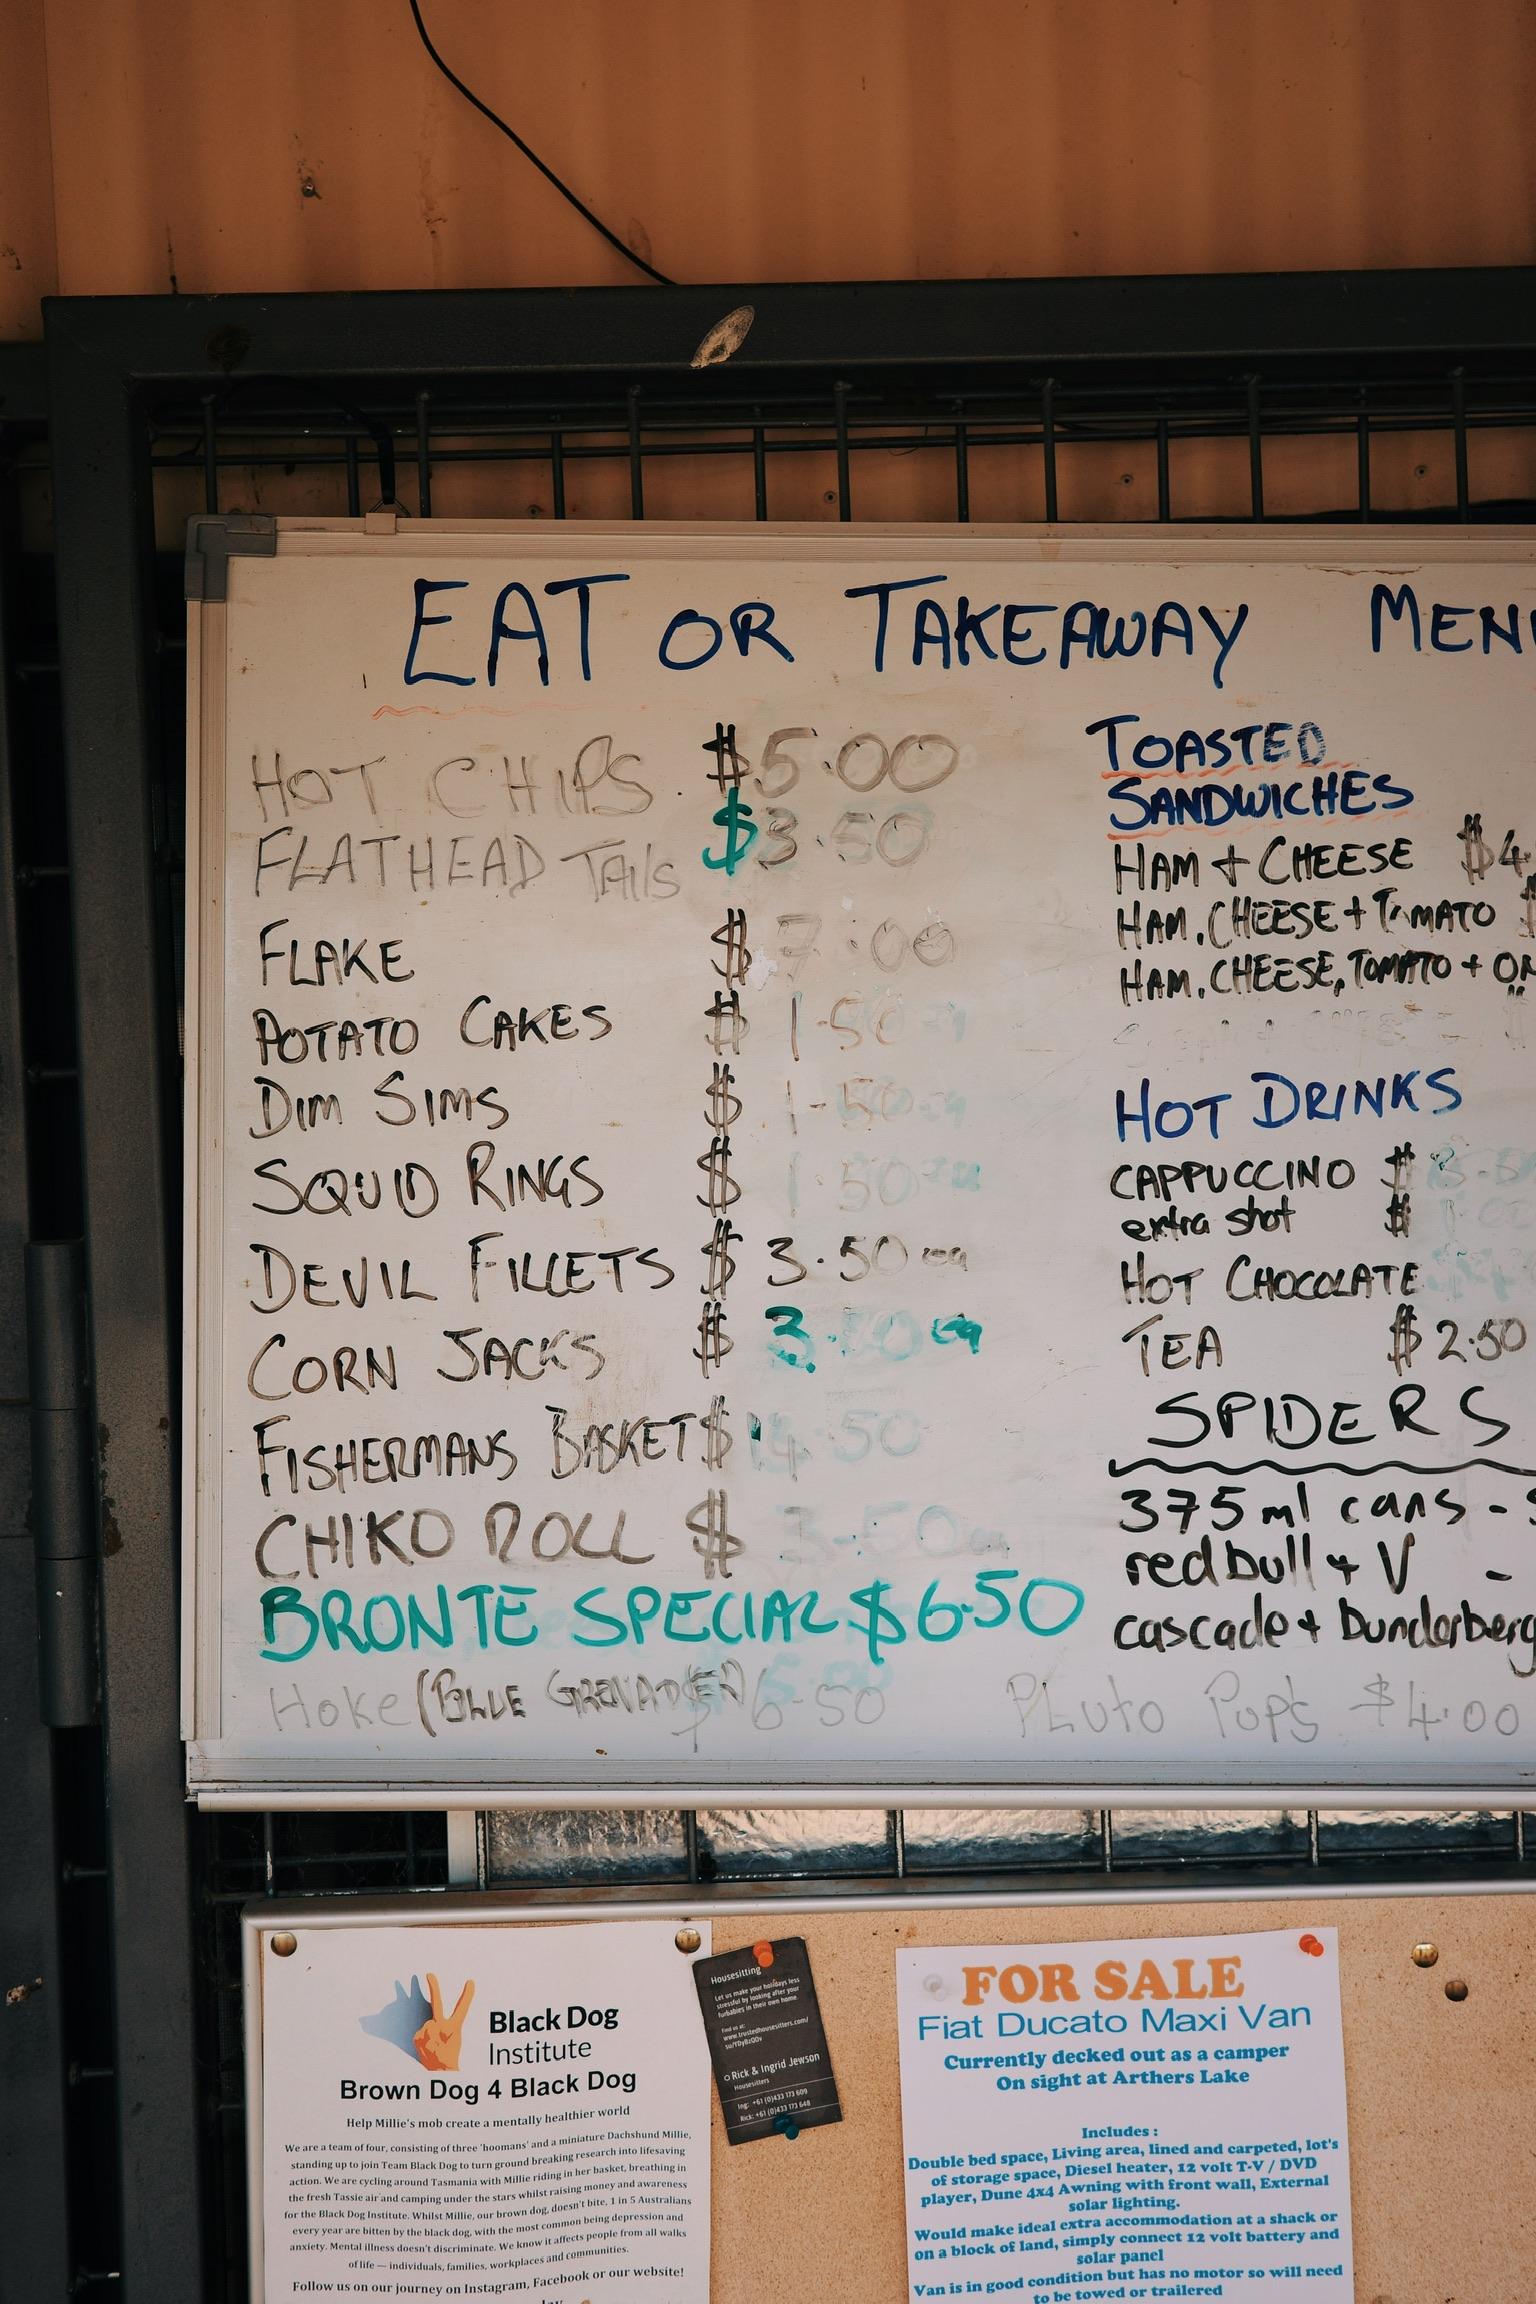 EAT OR TAKEAWAY MENU
HOT CHIPS $5.00
FLATHEAD TAils $3.50
FLAKE $7.00
POTATO CAKES $1-50
DIM SIMS $1-50
SQUID RINGS $1.50
DEVIL FILLETS $3.50 ea
CORN JACKS $3.50 ea
FISHERMANS BASKET $14.50
CHIKO ROLL $3-50
BRONTE SPECIAL $6.50
Hoke (BLUE GRENADIER) $6.50
TOASTED
SANDWICHES
HAM + CHEESE $4.
HAM, CHEESE + TOMATO $
HAM, CHEESE, TOMATO + ON
HOT DRINKS
CAPPUCCINO $
extra shot $
HOT CHOCOLATE
TEA $2.50
SPIDERS
375ml cans -
redbull + V -
cascade + Bunderberg
PLuto Pups $4.00
Black Dog
Institute
Brown Dog 4 Black Dog
Help Millie's mob create a mentally healthier world
We are a team of four, consisting of three 'hoomans' and a miniature Dachshund Millie,
standing up to join Team Black Dog to turn ground breaking research into lifesaving
action. We are cycling around Tasmania with Millie riding in her basket, breathing in
the fresh Tassie air and camping under the stars whilst raising money and awareness
for the Black Dog Institute. Whilst Millie, our brown dog, doesn't bite, 1 in 5 Australians
every year are bitten by the black dog, with the most common being depression and
anxiety. Mental illness doesn't discriminate. We know it affects people from all walks
of life — individuals, families, workplaces and communities.
Follow us on our journey on Instagram, Facebook or our website!
Housesitting
Let us make your holidays less
stressful by looking after your
furbabies in their own home
Find us at:
www.trustedhousesitters.com/
Rick & Ingrid Jewson
Housesitters
Ing: +61 (0)433 173 609
Rick: +61 (0)433 173 648
FOR SALE
Fiat Ducato Maxi Van
Currently decked out as a camper
On sight at Arthers Lake
Includes :
Double bed space, Living area, lined and carpeted, lot's
of storage space, Diesel heater, 12 volt T-V / DVD
player, Dune 4x4 Awning with front wall, External
solar lighting.
Would make ideal extra accommodation at a shack or
on a block of land, simply connect 12 volt battery and
solar panel
Van is in good condition but has no motor so will need
to be towed or trailered